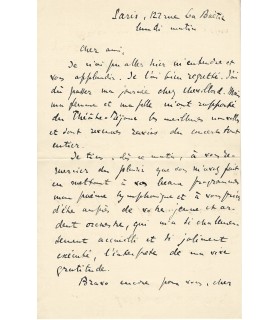 Paris, 127 rue La Boëtie
lundi matin
Cher ami,
Je n'ai pu aller hier m'entendre et
vous applaudir. Je l'ai bien regretté. J'ai
dû passer ma journée chez Chevillard. Mais
ma femme et ma fille m'ont rapporté
du Théâtre-Bijou les meilleures nouvelles
et sont revenues ravies du concert tout
entier.
Je tiens, dès ce matin, à vous re-
mercier du plaisir que vous m'avez fait
en mettant à vos beaux programmes
mon poème symphonique et à vous prier
d'être auprès de votre jeune et ar-
dent orchestre, qui m'a si chaleureu-
sement accueilli et si joliment
exécuté, l'interprète de ma vive
gratitude.
Bravo encore pour vous, cher